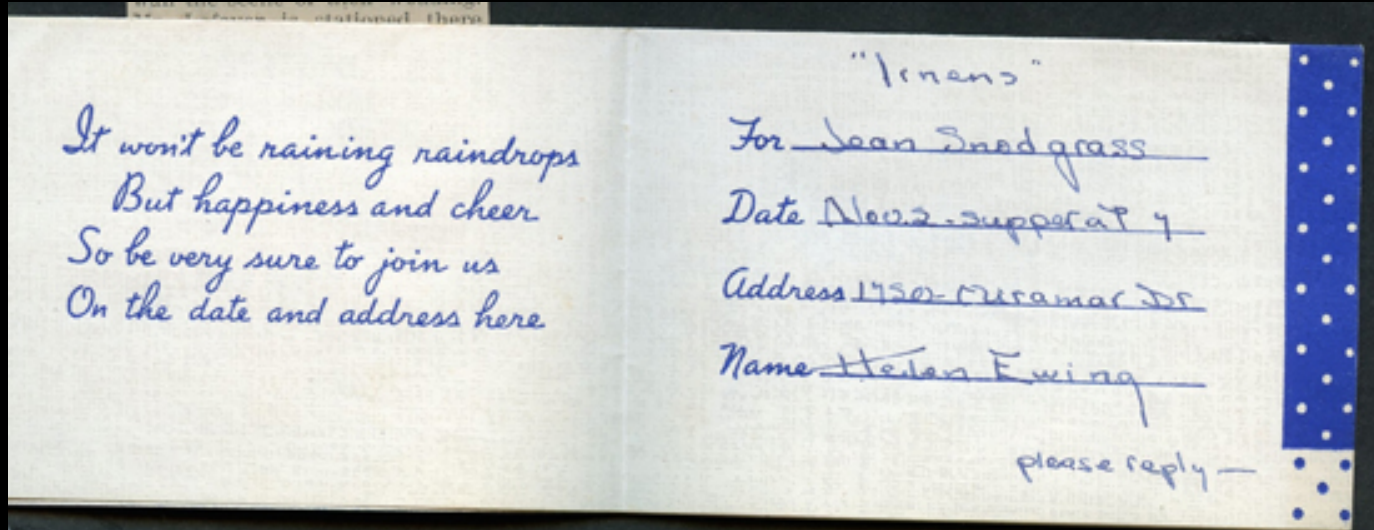 is stationed there
It won't be raining raindrops
But happiness and cheer
So be very sure to join us
On the date and address here
"linens"
For Jean Snodgrass
Date Nov. 2 - supper at 7
Address Miramar Dr
Name Helen Ewing
please reply —